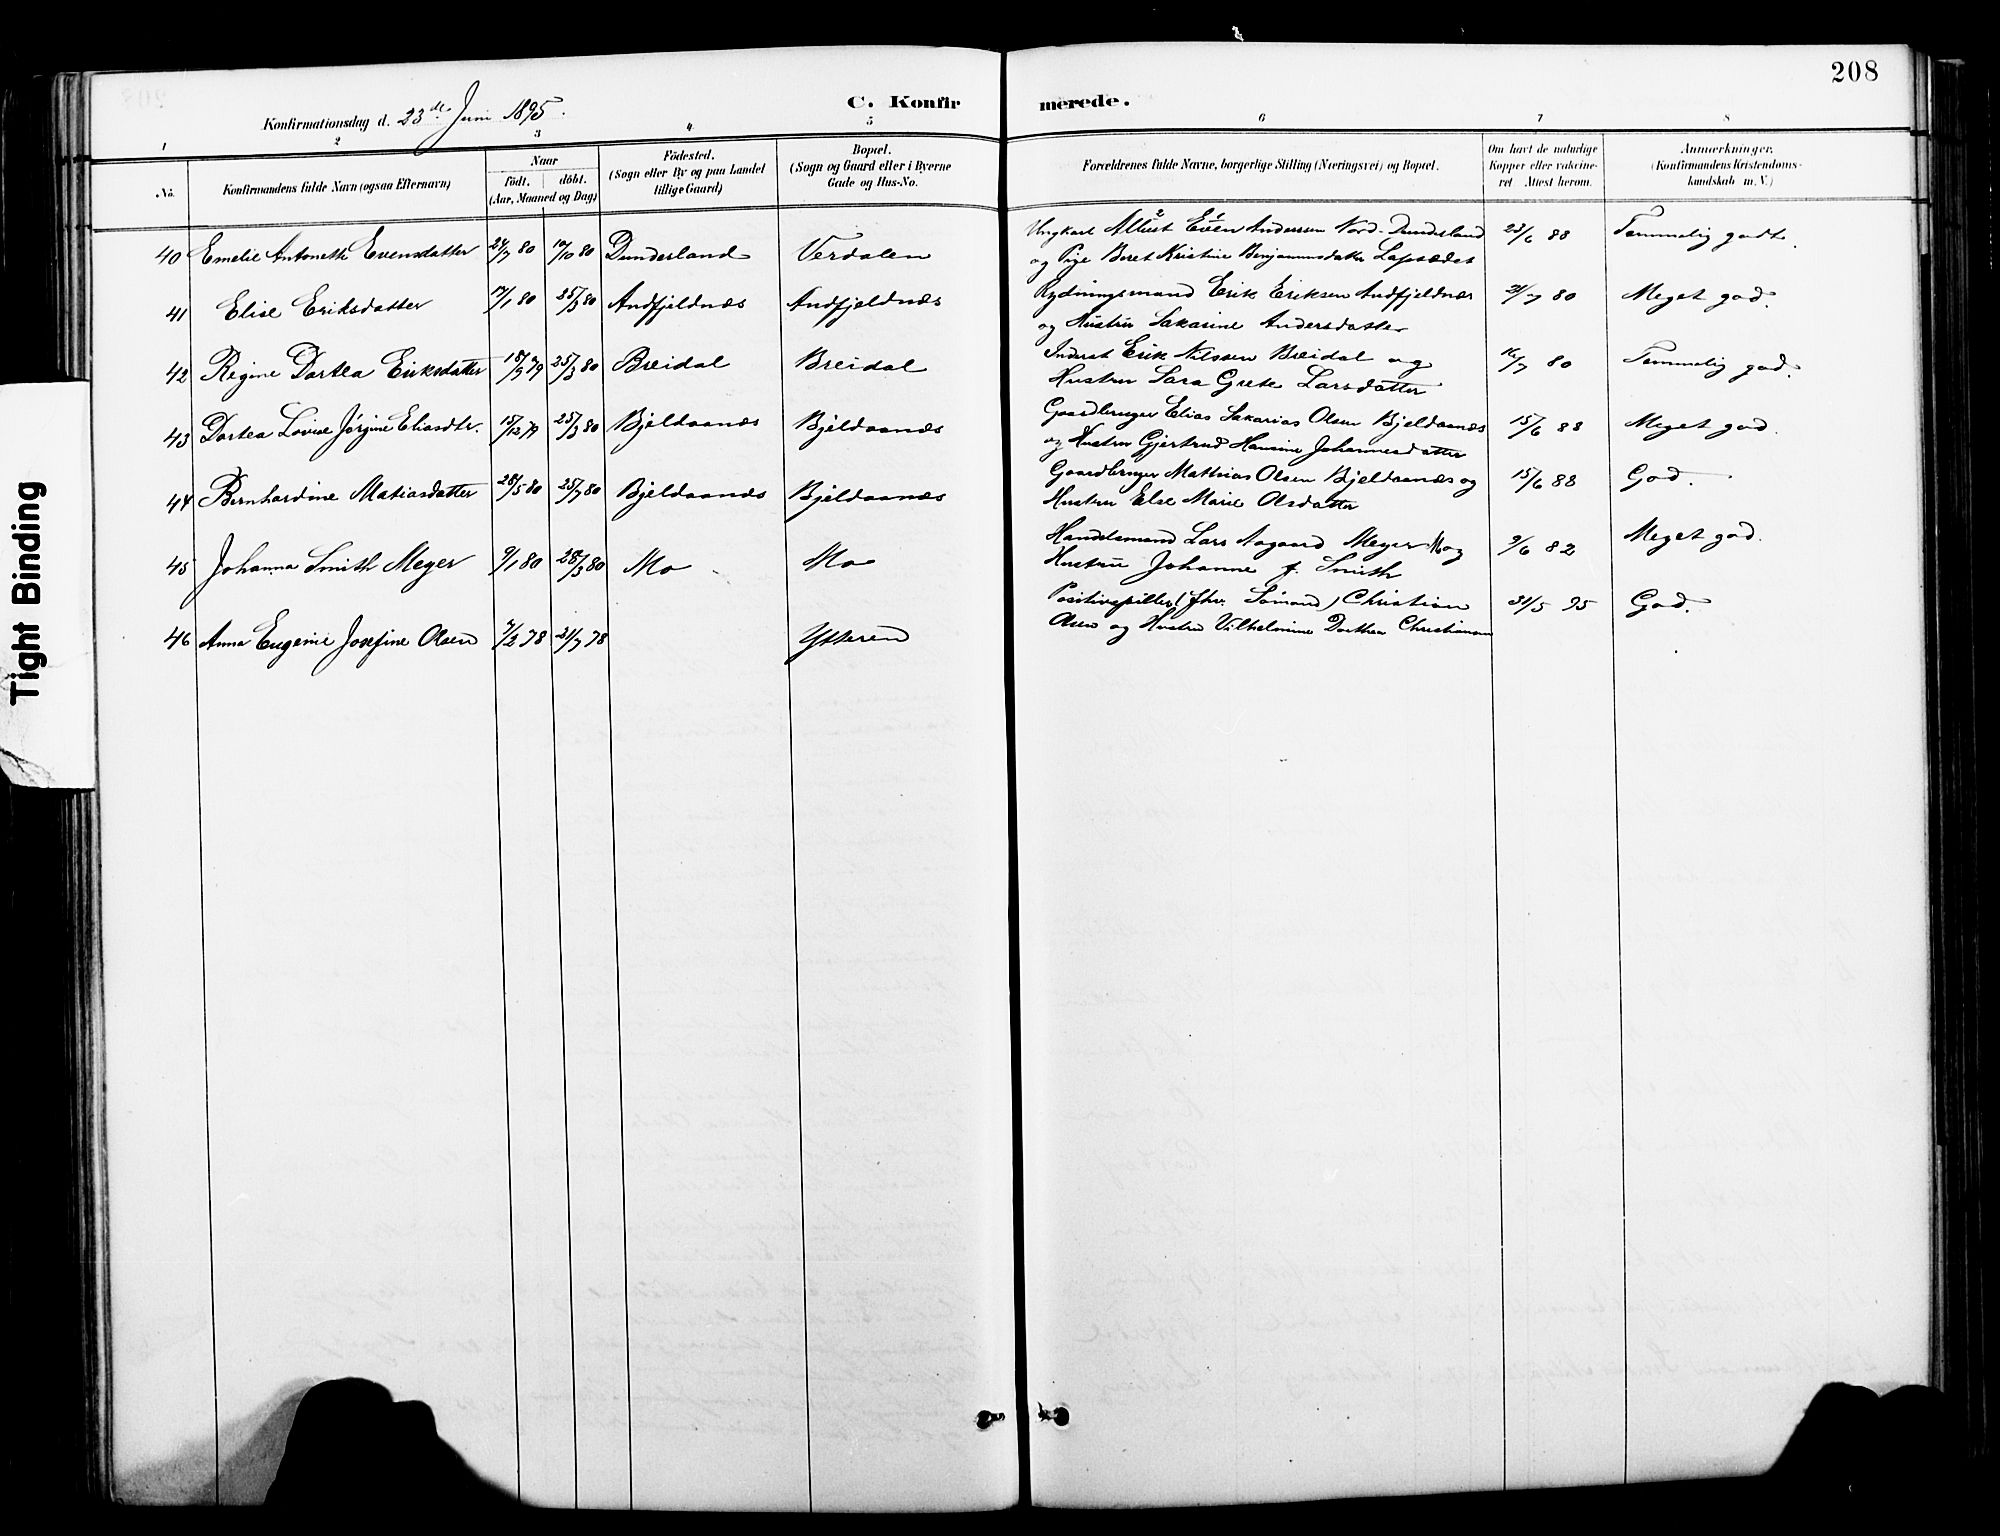 208
Konfirmationsdag d. 23de Juni 1895.
C. Konfirmerede.
1 2 3 4 5 6 7 8
No.
Konfirmandens fulde Navn (ogsaa Efternavn)
Naar
födt. döbt.
(Aar, Maaned og Dag)
Födested.
(Sogn eller By og paa Landet
tillige Gaard)
Bopæl.
(Sogn og Gaard eller i Byerne
Gade og Hus-No.
Forældrenes fulde Navne, borgerlige Stilling (Næringsvei) og Bopæl.
Om havt de naturlige
Kopper eller vakcine-
ret Attest herom.
Anmærkninger.
(Konfirmandens Kristendoms-
kundskab m. V.)
40 Emelie Antonette Evensdatter 24/7 80 10/10 80 Dunderland Verdalen Ungkarl Albert Even Andersen Nord-Dunderland 23/6 88 Temmelig godt.
og Pige Beret Kristine Benjaminsdatter
41 Elise Eriksdatter 17/1 80 25/3 80 Andfjeldnæs Andfjeldnæs Rydningsmand Erik Eriksen Andfjeldnæs 21/7 80 Meget god.
og Hustru Sakarine Andersdatter
42 Regine Dortea Eriksdatter 18/9 79 25/3 80 Breidal Breidal Inderst Erik Nilssen Breidal og 16/7 80 Temmelig god.
Hustru Sara Grete Larsdatter
43 Dortea Lovise Jørgine Eliasdtr. 15/12 79 25/3 80 Bjeldaanæs Bjeldaanæs Gaardbruger Elias Sakarias Olsen Bjeldaanæs 15/6 88 Meget god.
og Hustru Gjertrud Hansine Johannesdatter
44 Bernhardine Matiasdatter 28/5 80 25/7 80 Bjeldaanæs Bjeldaanæs Gaardbruger Mathias Olsen Bjeldaanæs og 15/6 88 God.
Hustru Else Marie Olsdatter
45 Johanna Smith Meyer 9/1 80 28/3 80 Mo Mo Handelsmand Lars Aagaard Meyer Mo og 9/6 82 Meget god.
Hustru Johanne f. Smith
46 Anna Eugenie Josefine Olsen 7/2 78 21/7 78 Ytteren Positivspiller (fhv. Sømand) Christian 31/5 95 God.
Olsen og Hustru Vilhelmine Dorthea Christiansen
Tight Binding